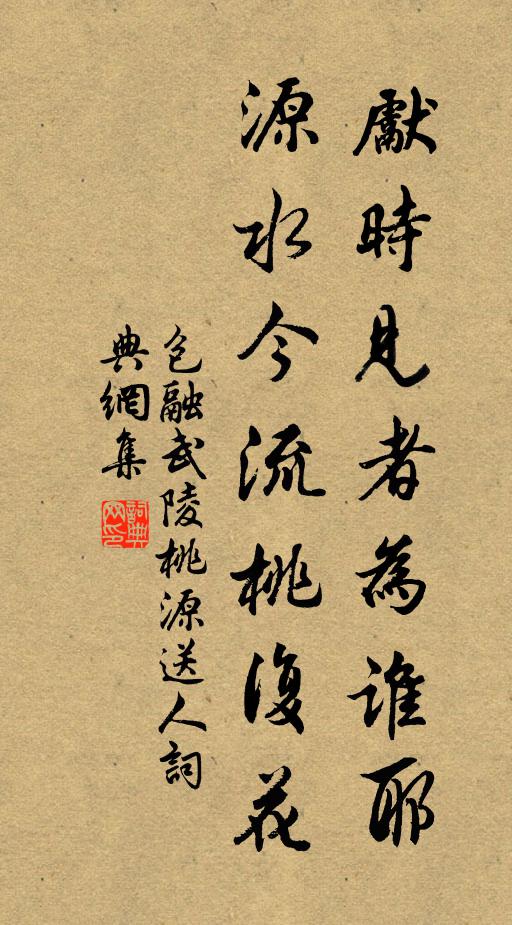 獻時見者為誰耶
源水今流桃復花
包融武陵桃源送人詞
典網集
詞典
网印